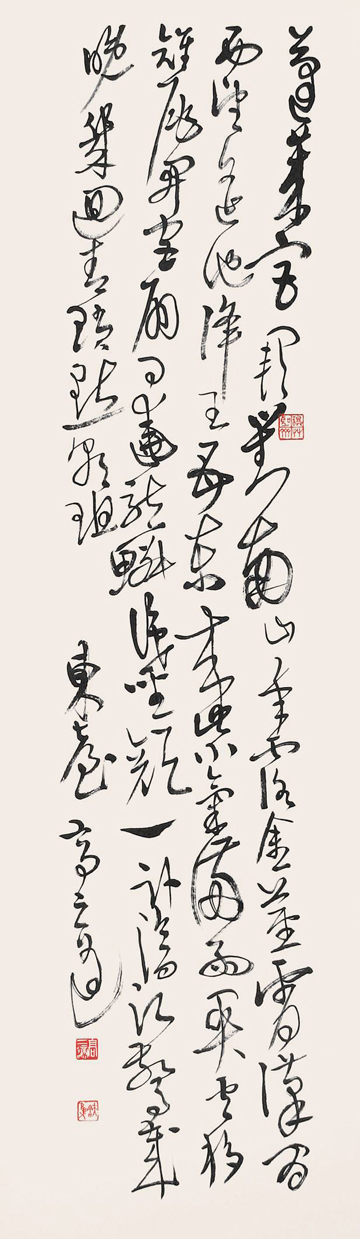 蓬萊宮闕對南山承露金莖霄漢間
西望瑤池降王母東來紫氣滿函關雲移
雉尾開宮扇日遶龍鱗識聖顏一臥滄江驚歲
晚幾回青瑣點朝班 東臺高